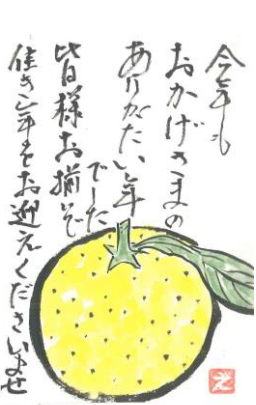 今年も
おかげさまの
ありがたい年
でした
皆様お揃いで
佳き年をお迎えくださいませ